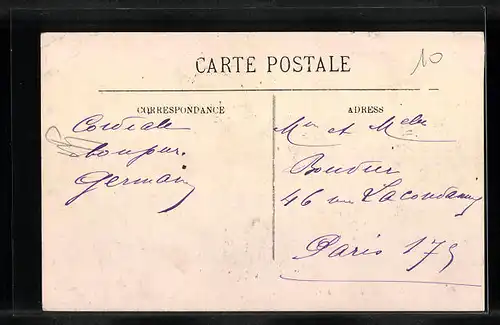 10
CARTE POSTALE
CORRESPONDANCE
Cordiale
bonjour.
Germain
ADRESS
Mr et Mme
46 rue Lacondamine
Paris 17e